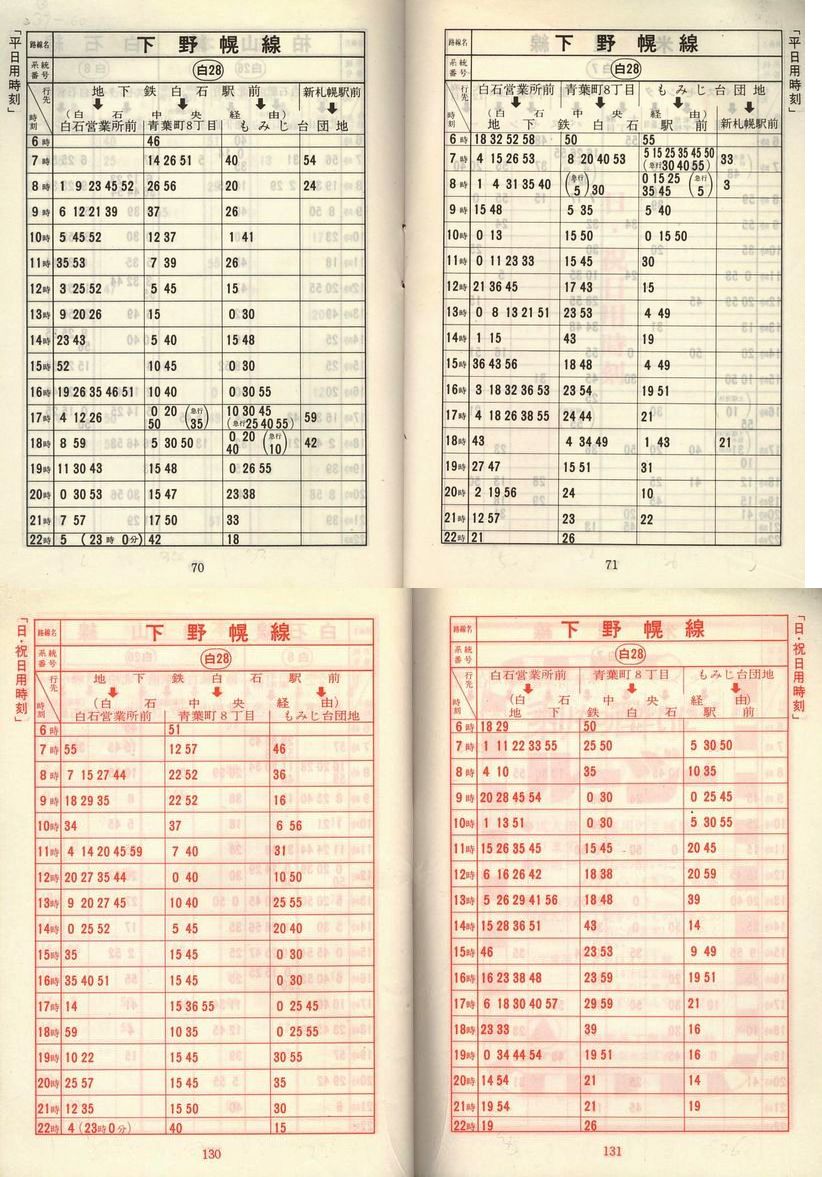 「平日用時刻」
路線名 下野幌線
系統番号 白28
行先 時刻 地下鉄白石駅前 新札幌駅前
(白石中央経由)
白石営業所前 青葉町8丁目 もみじ台団地
6時 46
7時 14 26 51 40 54
8時 1 9 23 45 52 26 56 20 24
9時 6 12 21 39 37 26
10時 5 45 52 12 37 1 41
11時 35 53 7 39 26
12時 3 25 52 5 45 15
13時 9 20 26 15 0 30
14時 23 43 5 40 15 48
15時 52 10 45 0 30
16時 19 26 35 46 51 10 40 0 30 55
17時 4 12 26 0 20 50 (急行35) 10 30 45 (急行25 40 55) 59
18時 8 59 5 30 50 0 20 40 (急行10) 42
19時 11 30 43 15 48 0 26 55
20時 0 30 53 15 47 23 38
21時 7 57 17 50 33
22時 5 (23時0分) 42 18
70
「平日用時刻」
路線名 下野幌線
系統番号 白28
行先 時刻 白石営業所前 青葉町8丁目 もみじ台団地
(白石中央経由)
地下鉄白石駅前 新札幌駅前
6時 18 32 52 58 50 55
7時 4 15 26 53 8 20 40 53 5 15 25 35 45 50 (急行30 40 55) 33
8時 1 4 31 35 40 (急行5) 30 0 15 25 35 45 (急行5) 3
9時 15 48 5 35 5 40
10時 0 13 15 50 0 15 50
11時 0 11 23 33 15 45 30
12時 21 36 45 17 43 15
13時 0 8 13 21 51 23 53 4 49
14時 1 15 43 19
15時 36 43 56 18 48 4 49
16時 3 18 32 36 53 23 54 19 51
17時 4 18 26 38 55 24 44 21
18時 43 4 34 49 1 43 21
19時 27 47 15 51 31
20時 2 19 56 24 10
21時 12 57 23 22
22時 21 26
71
「日・祝日用時刻」
路線名 下野幌線
系統番号 白28
行先 時刻 地下鉄白石駅前
(白石中央経由)
白石営業所前 青葉町8丁目 もみじ台団地
6時 51
7時 55 12 57 46
8時 7 15 27 44 22 52 36
9時 18 29 35 22 52 16
10時 34 37 6 56
11時 4 14 20 45 59 7 40 31
12時 20 27 35 44 0 40 10 50
13時 9 20 27 45 10 40 25 55
14時 0 25 52 5 45 20 40
15時 35 15 45 0 30
16時 35 40 51 15 45 0 30
17時 14 15 36 55 0 25 45
18時 59 10 35 0 25 55
19時 10 22 15 45 30 55
20時 25 57 15 45 35
21時 12 35 15 50 30
22時 4 (23時0分) 40 15
130
「日・祝日用時刻」
路線名 下野幌線
系統番号 白28
行先 時刻 白石営業所前 青葉町8丁目 もみじ台団地
(白石中央経由)
地下鉄白石駅前
6時 18 29 50
7時 1 11 22 33 55 25 50 5 30 50
8時 4 10 35 10 35
9時 20 28 45 54 0 30 0 25 45
10時 1 13 51 0 30 5 30 55
11時 15 26 35 45 15 45 20 45
12時 6 16 26 42 18 38 20 59
13時 5 26 29 41 56 18 48 39
14時 15 28 36 51 43 14
15時 46 23 53 9 49
16時 16 23 38 48 23 59 19 51
17時 6 18 30 40 57 29 59 21
18時 23 33 39 16
19時 0 34 44 54 19 51 16
20時 14 54 21 14
21時 19 54 21 19
22時 19 26
131